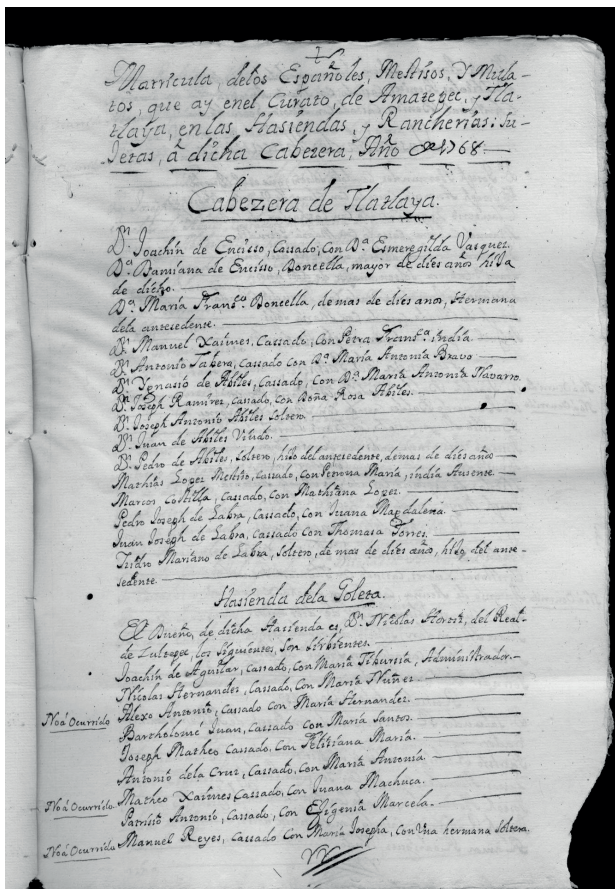 Matricula, delos Españoles, Mestisos, Y Mula-
tos, que ay enel Curato, de Amatepec, y Tla-
tlaya, en las Hasiendas, y Rancherias: Su-
jetas, à dicha Cabezera, Año de 1768.
Cabezera de Tlatlaya.
Dn. Joachin de Encisso, Cassado, con Da. Esmeregilda Vasquez.
Da. Damiana de Encisso, Doncella, mayor de dies años hija
de dicho.
Da. Maria Fransca. Doncella, demas de dies anos, Hermana
dela antesedente.
Dn. Manuel Xaimes. Cassado, con Petra Fransca. india.
Dn. Antonio Tabera, Cassado con Da. Maria Antonia Bravo
Dn. Ygnasio de Abiles, Cassado, Con Da. Maria Antonia Navarro.
Dn. Joseph Ramirez, Cassado, con Doña Rosa Abiles.
Dn. Joseph Antonio Abiles Soltero.
Dn. Juan de Abiles Viudo.
Dn. Pedro de Abiles, Soltero, hijo del antesedente, demas de dies años
Mathias Lopez Mestiso, Cassado, con Petrona Maria, india Ausente.
Marcos Costilla, Cassado, con Mathiana Lopez.
Pedro Joseph de Labra, Cassado, con Juana Magdalena.
Juan Joseph de Labra, Cassado con Thomasa Torres.
Isidro Mariano de Labra, Soltero, de mas de dies años, hijo del ante-
sedente.
Hasienda dela Goleta.
El Dueño, de dicha Hasienda es, Dn. Nicolas del Real
de Zultepec, los Siguientes, Son Sirbientes.
Joachin de Aguilar, Cassado, con Maria Tibursia, Administrador.
Nicolas Hernandes, Cassado, Con Maria Nuñez
Alexo Antonio, Cassado con Maria Hernandez.
Noá Ocurrido Bartholomé Juan, Cassado con Maria Santos.
Joseph Matheo Cassado, Con Felisiana Maria.
Antonio dela Cruz, Cassado, con Maria Antonia.
Matheo Xaimes Cassado, con Juana Machuca.
Noá Ocurrido Patrisio Antonio, Cassado, con Efigenia Marcela.
Noá Ocurrido Manuel Reyes, Cassado Con Maria Josepha, con Una hermana Soltera.